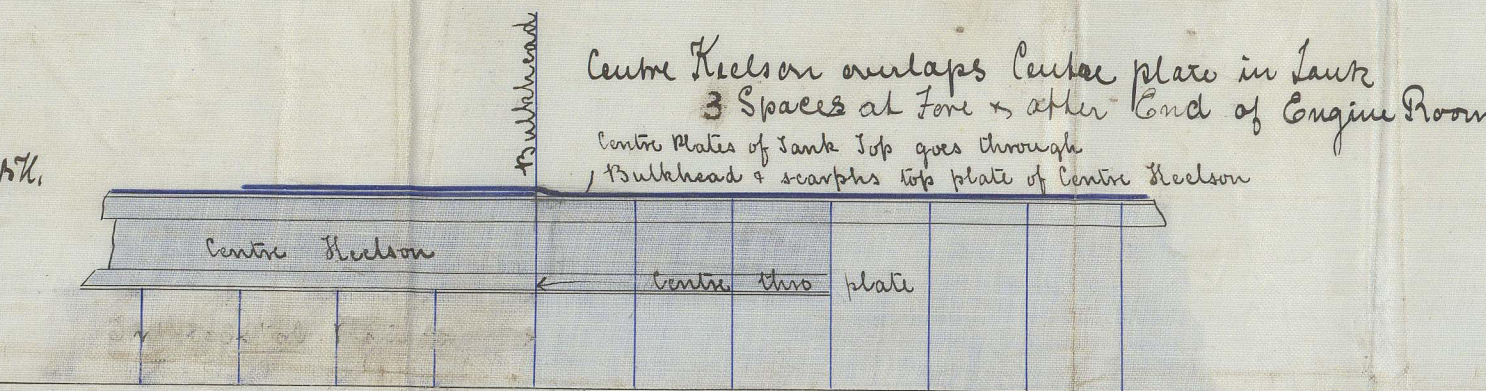 Bulkhead
Centre Keelson overlaps Centre plate in Tank
3 Spaces at Fore & after End of Engine Room
Centre Plates of Tank Top goes through
Bulkhead & scarphs top plate of Centre Keelson
BH.
Centre Keelson
Centre thro plate